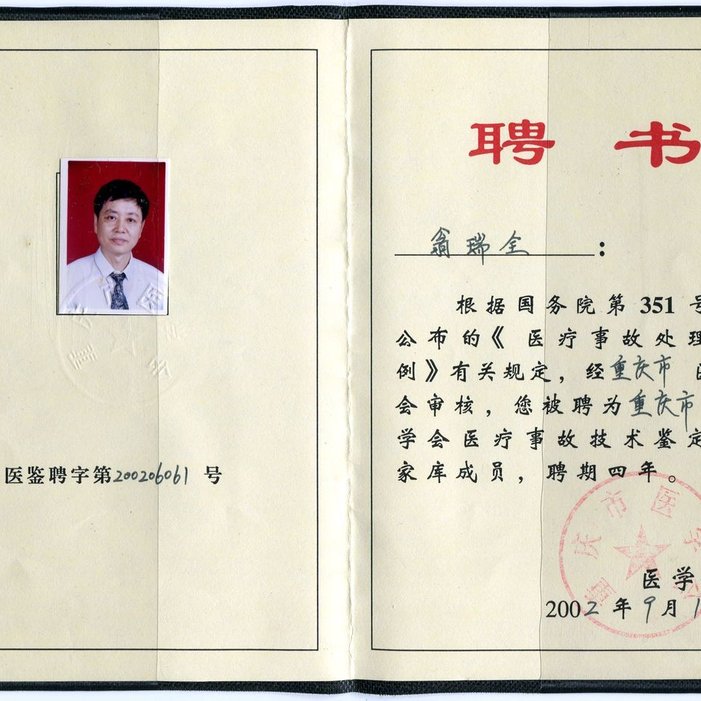 医鉴聘字第200206061号
聘书
翁瑞全:
根据国务院第351号
公布的《医疗事故处理
例》有关规定,经重庆市
会审核,您被聘为重庆市
学会医疗事故技术鉴定
家库成员,聘期四年。
重庆市医学会
医学
2002年9月1